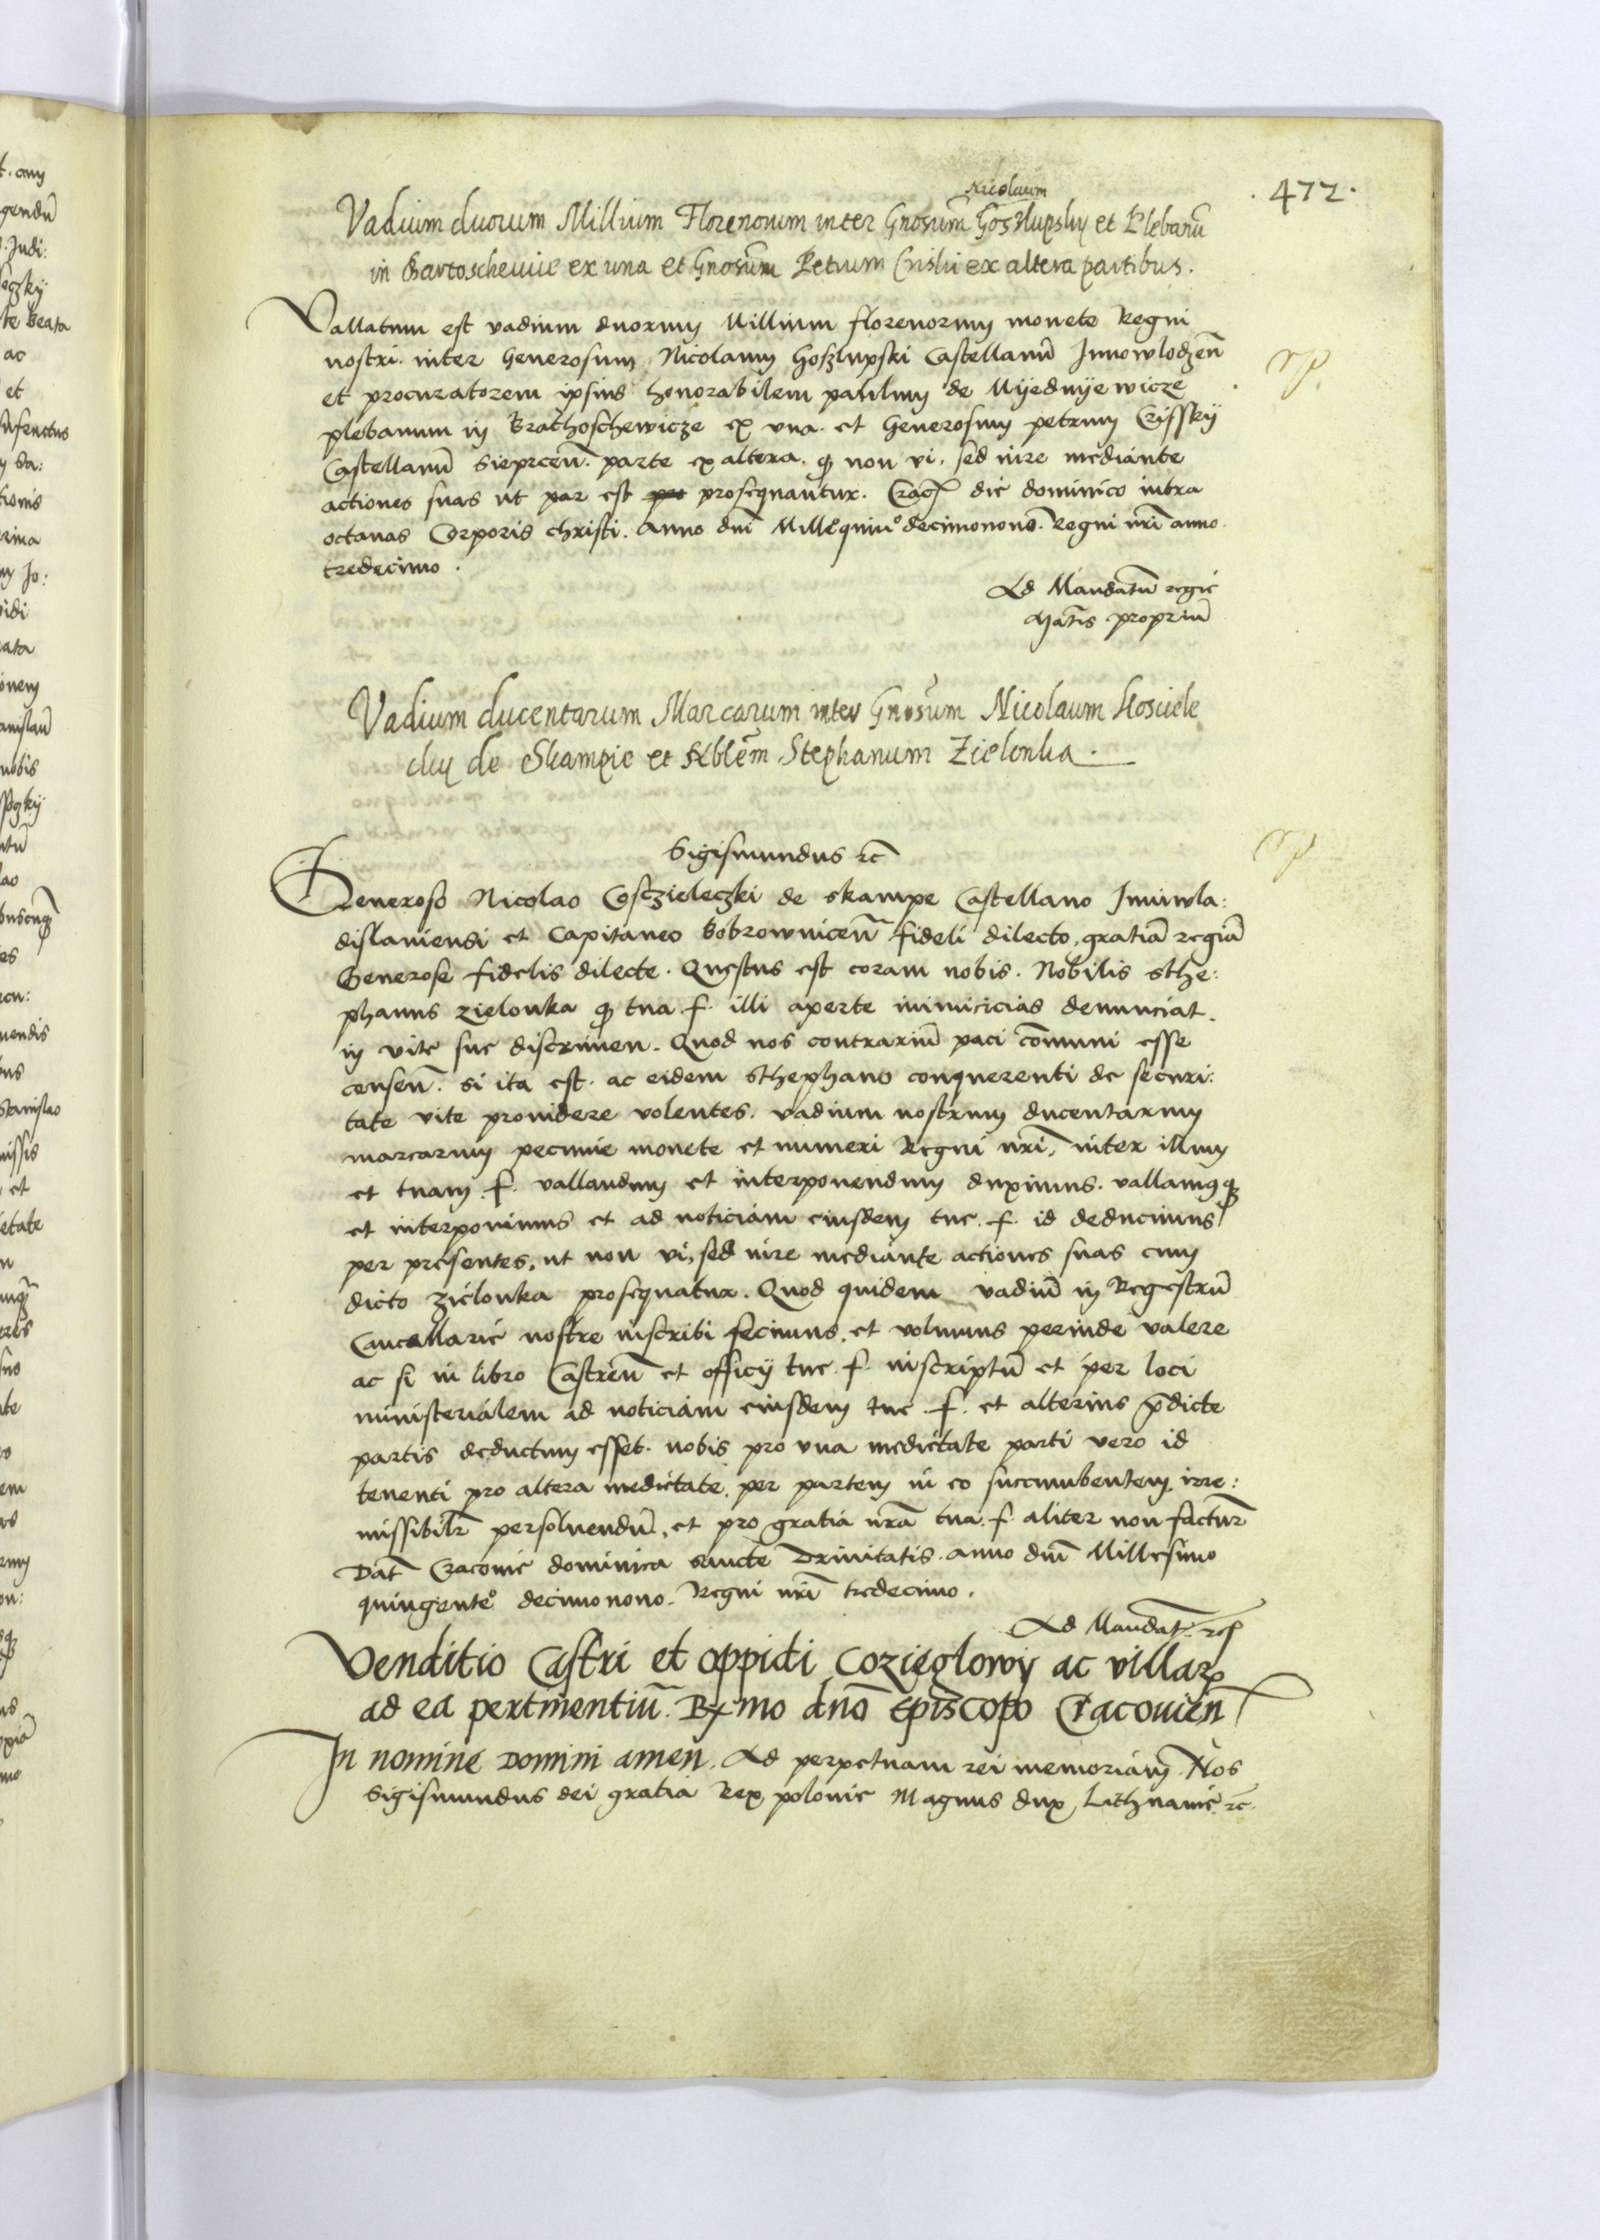 . 472 .
Nicolaum
Vadium duorum Millium Florenorum inter Gnosum̃ Goszlupsky et Plebanũ
in Bartoschewie ex una et Gnosũm Petrum Criski ex altera partibus.
Vallatum est vadium duorum Millium florenorum monete Regni
nostri inter Generosum Nicolaum Goszlupski Castellanũ Junowlodzeñ
et procuratorem ipsius honorabilem paulum de Myednyewicze
plebanum in Brathoschewicze ex vna et Generosum petrum Crissky
Castellanũ Sieprceñ. parte ex altera. ꝙ non vi. sed iure mediante
actiones suas ut par est prosequantur. Crac̄ die dominico infra
octauas Corporis christi. Anno dñi Millo quinº decimonono. Regni nr̃i anno
tredecimo.
Ad Mandatũ regie
Mtĩs propriũ
Vadium ducentarum Marcarum inter Gnosũm Nicolaum Kosciele
cky de Skampie et Nblem̃ Stephanum Zielonka.
Sigismundus rc̃
Generoso Nicolao Cosczieleczki de skampe Castellano Iuniwla:
dislauiensi et Capitaneo Bobrowniceñ fideli dilecto, gratiã regiã
Generose fidelis dilecte. Questus est coram nobis. Nobilis sthe:
phanus zielonka ꝙ tua f. illi aperte inimicicias denunciat.
in vite sue discrimen. Quod nos contrariũ paci cõmuni esse
censeñ. si ita est. ac eidem sthephano conquerenti de securi:
tate vite prouidere volentes. vadium nostrum ducentarum
marcarum pecunie monete et numeri Regni nr̃i, inter illum
et tuam f. vallandum et interponendum duximus. vallamusqꝫ
et interponimus et ad noticiam eiusdem tue. f. id deducimus
per presentes. ut non vi, sed iure mediante actiones suas cum
dicto zielonka prosequatur. Quod quidem vadiũ in Regestrũ
Cancellarie nostre inscribi fecimus. et volumus perinde valere
ac si in libro Castreñ et officij tue. f. inscriptũ et per loci
ministerialem ad noticiam eiusdem tue. f. et alterius p̃dicte
partis deductum esset. nobis pro vna medietate parti vero id
tenenti pro altera medietate. per partem in eo succumbentem irre:
missibilr̃ persoluendũ, et pro gratia nr̃a tua. f. aliter non factur̃
Dat̃ Cracouie dominica sancte Trinitatis. anno dñi Millesimo
quingentº decimonono. Regni nr̃i tredecimo.
Ad Mandat̃ rc̃
Venditio Castri et oppidi Cozieglowy ac villarꝝ
ad ea pertinentiũ. Rx̃mo dño Episcopo Cracouieñ
In nomine Domini amen. Ad perpetuam rei memoriam. Nos
Sigismundus dei gratia Rex polonie Magnus dux Lithuanie rc̃.